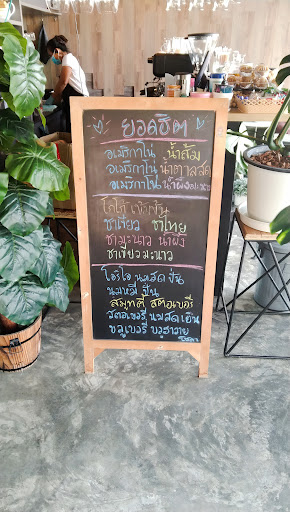 ยอดฮิต
อเมริกาโน่ น้ำส้ม
อเมริกาโน่ น้ำตาลสด
อเมริกาโน่ น้ำผึ้งมะนาว
โกโก้ เข้มข้น
ชาเขียว ชาไทย
ชามะนาว น้ำผึ้ง
ชาเขียวมะนาว
โอริโอ้ นมสด ปั่น
นมหมี ปั่น
สมูทตี้ สตอเบอรี่
สตอเบอรี่ นมสดเย็น
บลูเบอรี่ บลูฮาวาย